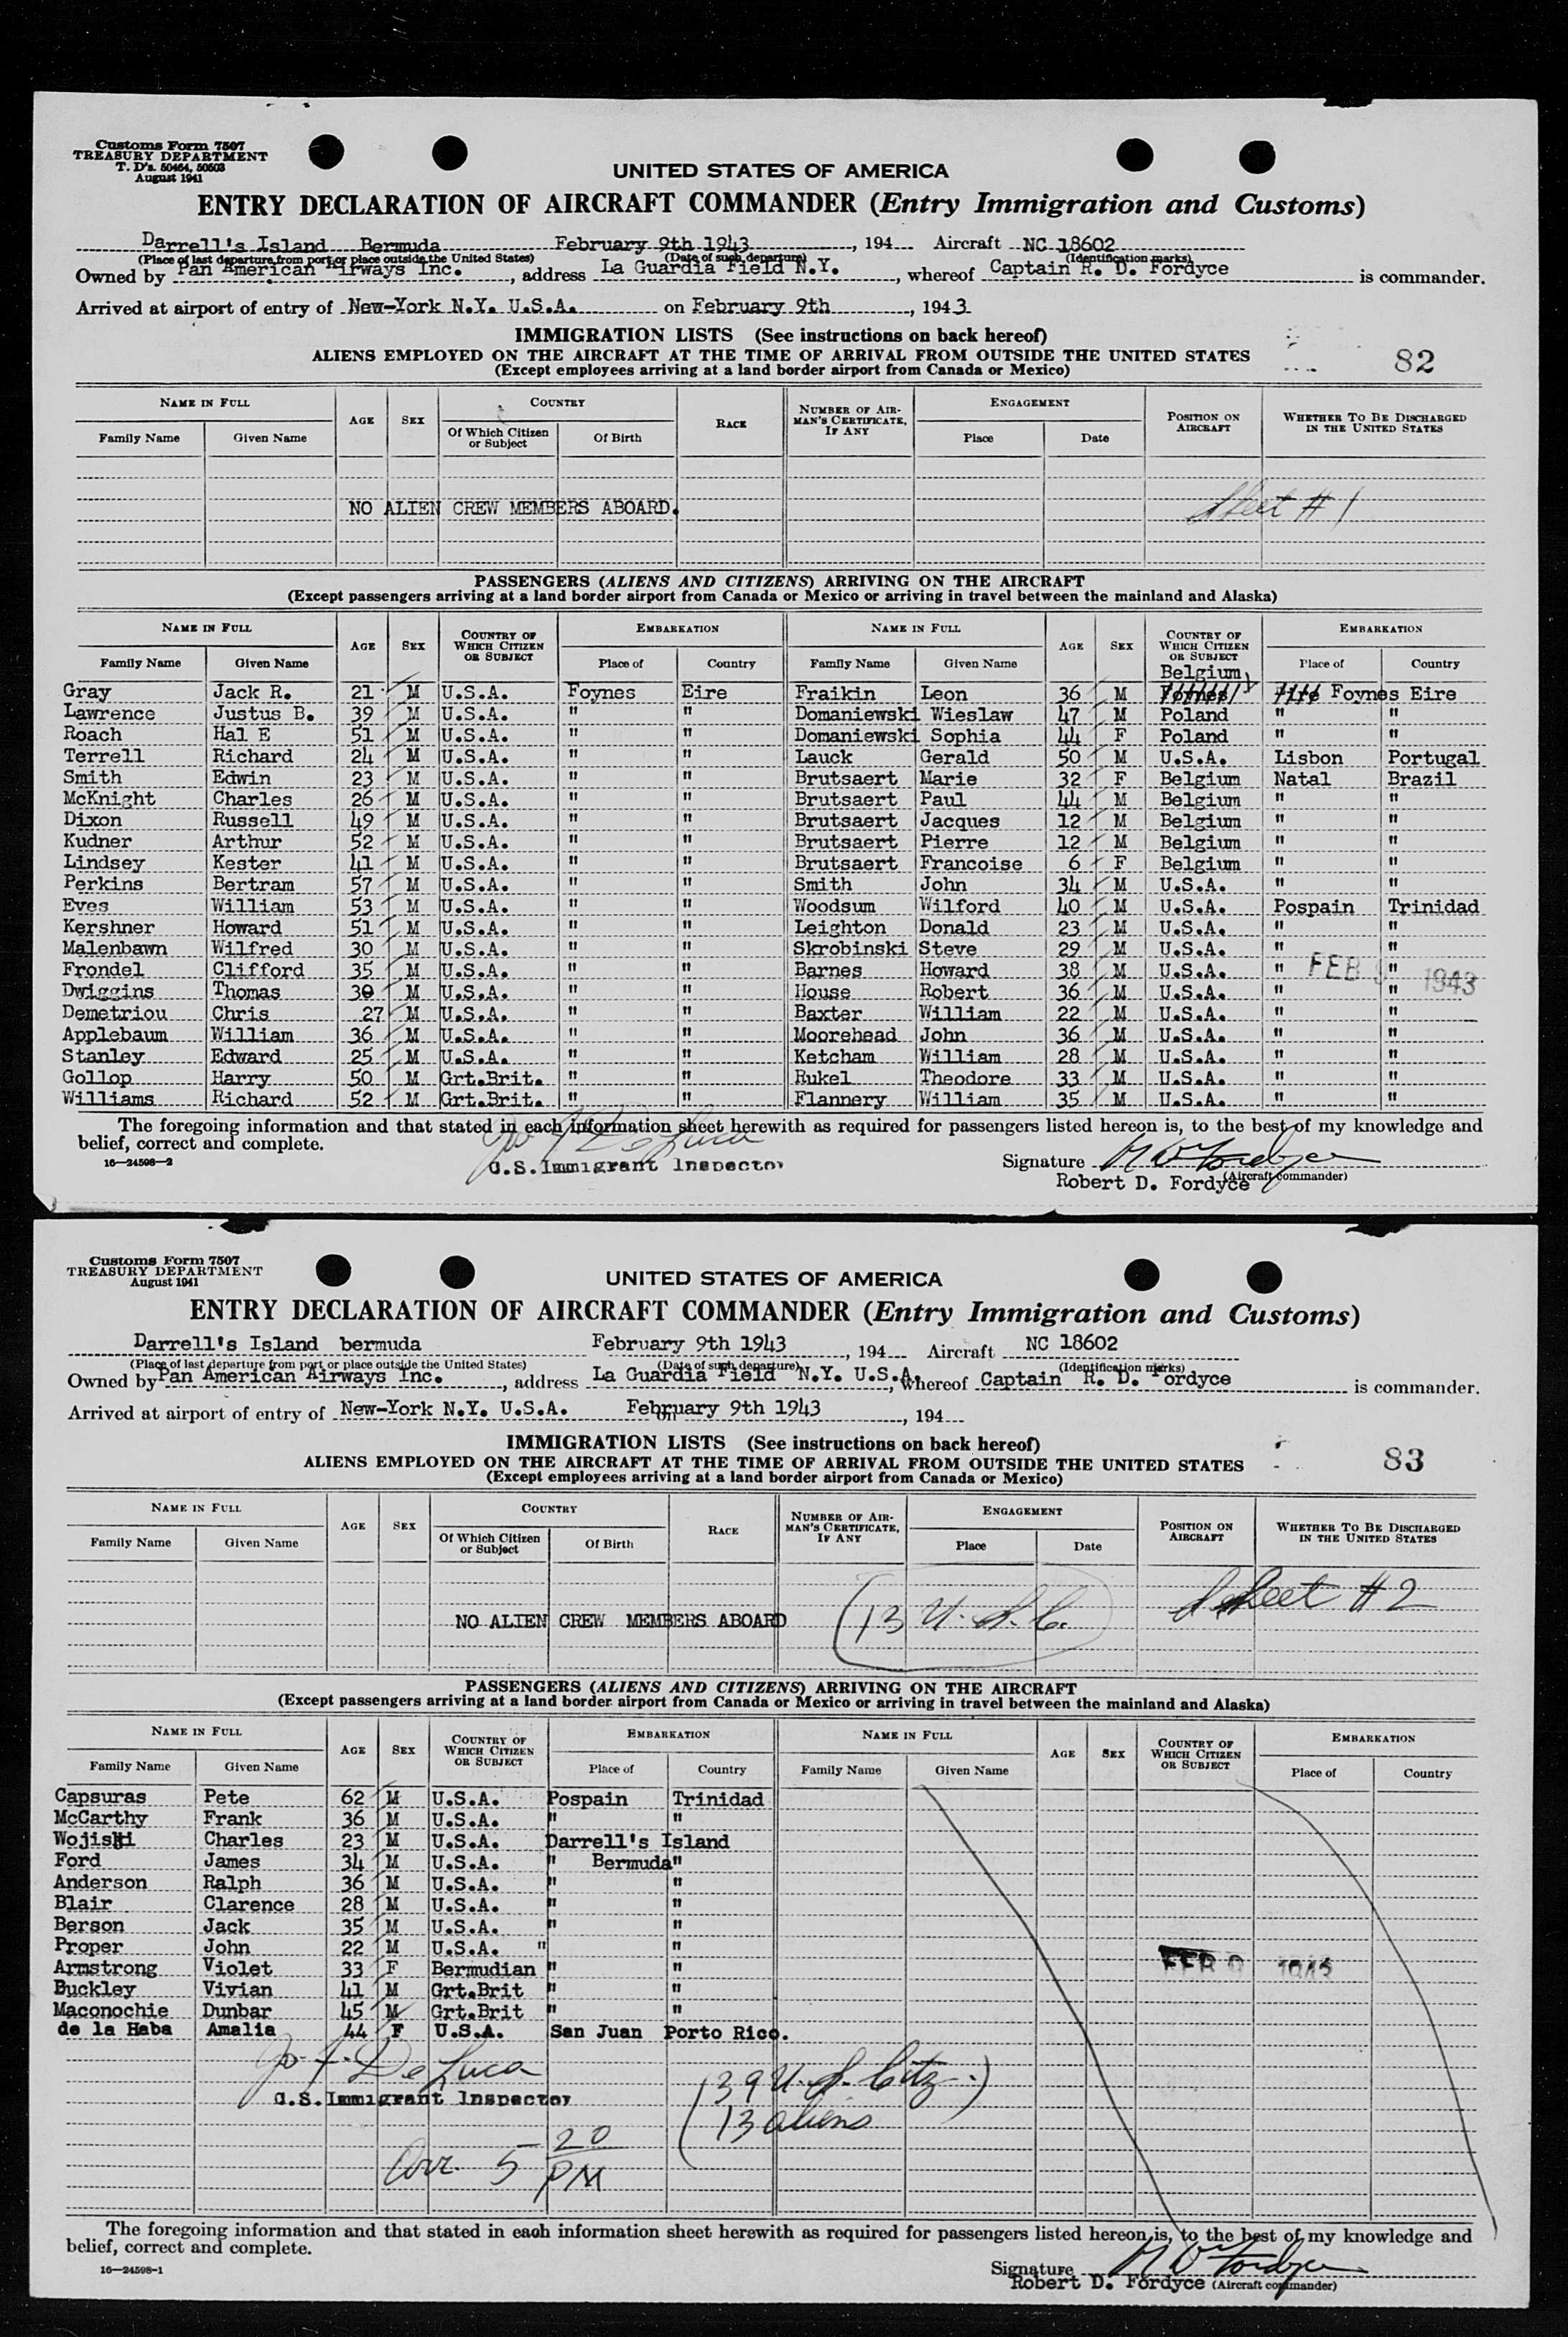 Customs Form 7507
TREASURY DEPARTMENT
T. D's. 50464, 50503
August 1941
UNITED STATES OF AMERICA
ENTRY DECLARATION OF AIRCRAFT COMMANDER (Entry Immigration and Customs)
Darrell's Island Bermuda February 9th 1943, 194 Aircraft NC 18602
(Place of last departure from port or place outside the United States) (Date of such departure) (Identification marks)
Owned by Pan American Airways Inc., address La Guardia Field N.Y., whereof Captain R. D. Fordyce is commander.
Arrived at airport of entry of New-York N.Y. U.S.A. on February 9th, 1943
IMMIGRATION LISTS (See instructions on back hereof)
ALIENS EMPLOYED ON THE AIRCRAFT AT THE TIME OF ARRIVAL FROM OUTSIDE THE UNITED STATES
82
(Except employees arriving at a land border airport from Canada or Mexico)
NAME IN FULL AGE SEX COUNTRY RACE NUMBER OF AIRMAN'S CERTIFICATE, IF ANY ENGAGEMENT POSITION ON AIRCRAFT WHETHER TO BE DISCHARGED IN THE UNITED STATES
Family Name Given Name Of Which Citizen or Subject Of Birth Place Date
NO ALIEN CREW MEMBERS ABOARD.
Sheet # 1
PASSENGERS (ALIENS AND CITIZENS) ARRIVING ON THE AIRCRAFT
(Except passengers arriving at a land border airport from Canada or Mexico or arriving in travel between the mainland and Alaska)
NAME IN FULL AGE SEX COUNTRY OF WHICH CITIZEN OR SUBJECT EMBARKATION NAME IN FULL AGE SEX COUNTRY OF WHICH CITIZEN OR SUBJECT EMBARKATION
Family Name Given Name Place of Country Family Name Given Name Place of Country
Gray Jack R. 21 M U.S.A. Foynes Eire Fraikin Leon 36 M Belgium Foynes Eire
Lawrence Justus B. 39 M U.S.A. " " Domaniewski Wieslaw 47 M Poland " "
Roach Hal E 51 M U.S.A. " " Domaniewski Sophia 44 F Poland " "
Terrell Richard 24 M U.S.A. " " Lauck Gerald 50 M U.S.A. Lisbon Portugal
Smith Edwin 23 M U.S.A. " " Brutsaert Marie 32 F Belgium Natal Brazil
McKnight Charles 26 M U.S.A. " " Brutsaert Paul 44 M Belgium " "
Dixon Russell 49 M U.S.A. " " Brutsaert Jacques 12 M Belgium " "
Kudner Arthur 52 M U.S.A. " " Brutsaert Pierre 12 M Belgium " "
Lindsey Kester 41 M U.S.A. " " Brutsaert Francoise 6 F Belgium " "
Perkins Bertram 57 M U.S.A. " " Smith John 34 M U.S.A. " "
Eves William 53 M U.S.A. " " Woodsum Wilford 40 M U.S.A. Pospain Trinidad
Kershner Howard 51 M U.S.A. " " Leighton Donald 23 M U.S.A. " "
Malenbawn Wilfred 30 M U.S.A. " " Skrobinski Steve 29 M U.S.A. " "
Frondel Clifford 35 M U.S.A. " " Barnes Howard 38 M U.S.A. " "
FEB 9 1943
Dwiggins Thomas 30 M U.S.A. " " House Robert 36 M U.S.A. " "
Demetriou Chris 27 M U.S.A. " " Baxter William 22 M U.S.A. " "
Applebaum William 36 M U.S.A. " " Moorehead John 36 M U.S.A. " "
Stanley Edward 25 M U.S.A. " " Ketcham William 28 M U.S.A. " "
Gollop Harry 50 M Grt.Brit. " " Rukel Theodore 33 M U.S.A. " "
Williams Richard 52 M Grt.Brit. " " Flannery William 35 M U.S.A. " "
The foregoing information and that stated in each information sheet herewith as required for passengers listed hereon is, to the best of my knowledge and
belief, correct and complete.
Jo. F. De Luca
16—24598—2
U.S. Immigrant Inspector
Signature R D Fordyce
Robert D. Fordyce (Aircraft commander)
Customs Form 7507
TREASURY DEPARTMENT
August 1941
UNITED STATES OF AMERICA
ENTRY DECLARATION OF AIRCRAFT COMMANDER (Entry Immigration and Customs)
Darrell's Island bermuda February 9th 1943, 194 Aircraft NC 18602
(Place of last departure from port or place outside the United States) (Date of such departure) (Identification marks)
Owned by Pan American Airways Inc., address La Guardia Field N.Y. U.S.A., whereof Captain R. D. Fordyce is commander.
Arrived at airport of entry of New-York N.Y. U.S.A. on February 9th 1943, 194
IMMIGRATION LISTS (See instructions on back hereof)
ALIENS EMPLOYED ON THE AIRCRAFT AT THE TIME OF ARRIVAL FROM OUTSIDE THE UNITED STATES
83
(Except employees arriving at a land border airport from Canada or Mexico)
NAME IN FULL AGE SEX COUNTRY RACE NUMBER OF AIRMAN'S CERTIFICATE, IF ANY ENGAGEMENT POSITION ON AIRCRAFT WHETHER TO BE DISCHARGED IN THE UNITED STATES
Family Name Given Name Of Which Citizen or Subject Of Birth Place Date
Sheet #2
NO ALIEN CREW MEMBERS ABOARD
(13 U. S. C.)
PASSENGERS (ALIENS AND CITIZENS) ARRIVING ON THE AIRCRAFT
(Except passengers arriving at a land border airport from Canada or Mexico or arriving in travel between the mainland and Alaska)
NAME IN FULL AGE SEX COUNTRY OF WHICH CITIZEN OR SUBJECT EMBARKATION NAME IN FULL AGE SEX COUNTRY OF WHICH CITIZEN OR SUBJECT EMBARKATION
Family Name Given Name Place of Country Family Name Given Name Place of Country
Capsuras Pete 62 M U.S.A. Pospain Trinidad
McCarthy Frank 36 M U.S.A. " "
Wojiski Charles 23 M U.S.A. Darrell's Island
Ford James 34 M U.S.A. " Bermuda"
Anderson Ralph 36 M U.S.A. " "
Blair Clarence 28 M U.S.A. " "
Berson Jack 35 M U.S.A. " "
Proper John 22 M U.S.A. " "
Armstrong Violet 33 F Bermudian " "
FEB 9 1943
Buckley Vivian 41 M Grt.Brit " "
Maconochie Dunbar 45 M Grt.Brit " "
de la Haba Amalia 44 F U.S.A. San Juan Porto Rico.
Jo. F. De Luca
U.S. Immigrant Inspector
(39 U. S. Citz.)
13 aliens
Arr. 5 20 PM
The foregoing information and that stated in each information sheet herewith as required for passengers listed hereon is, to the best of my knowledge and
belief, correct and complete.
16—24598-1
Signature R D Fordyce
Robert D. Fordyce (Aircraft commander)